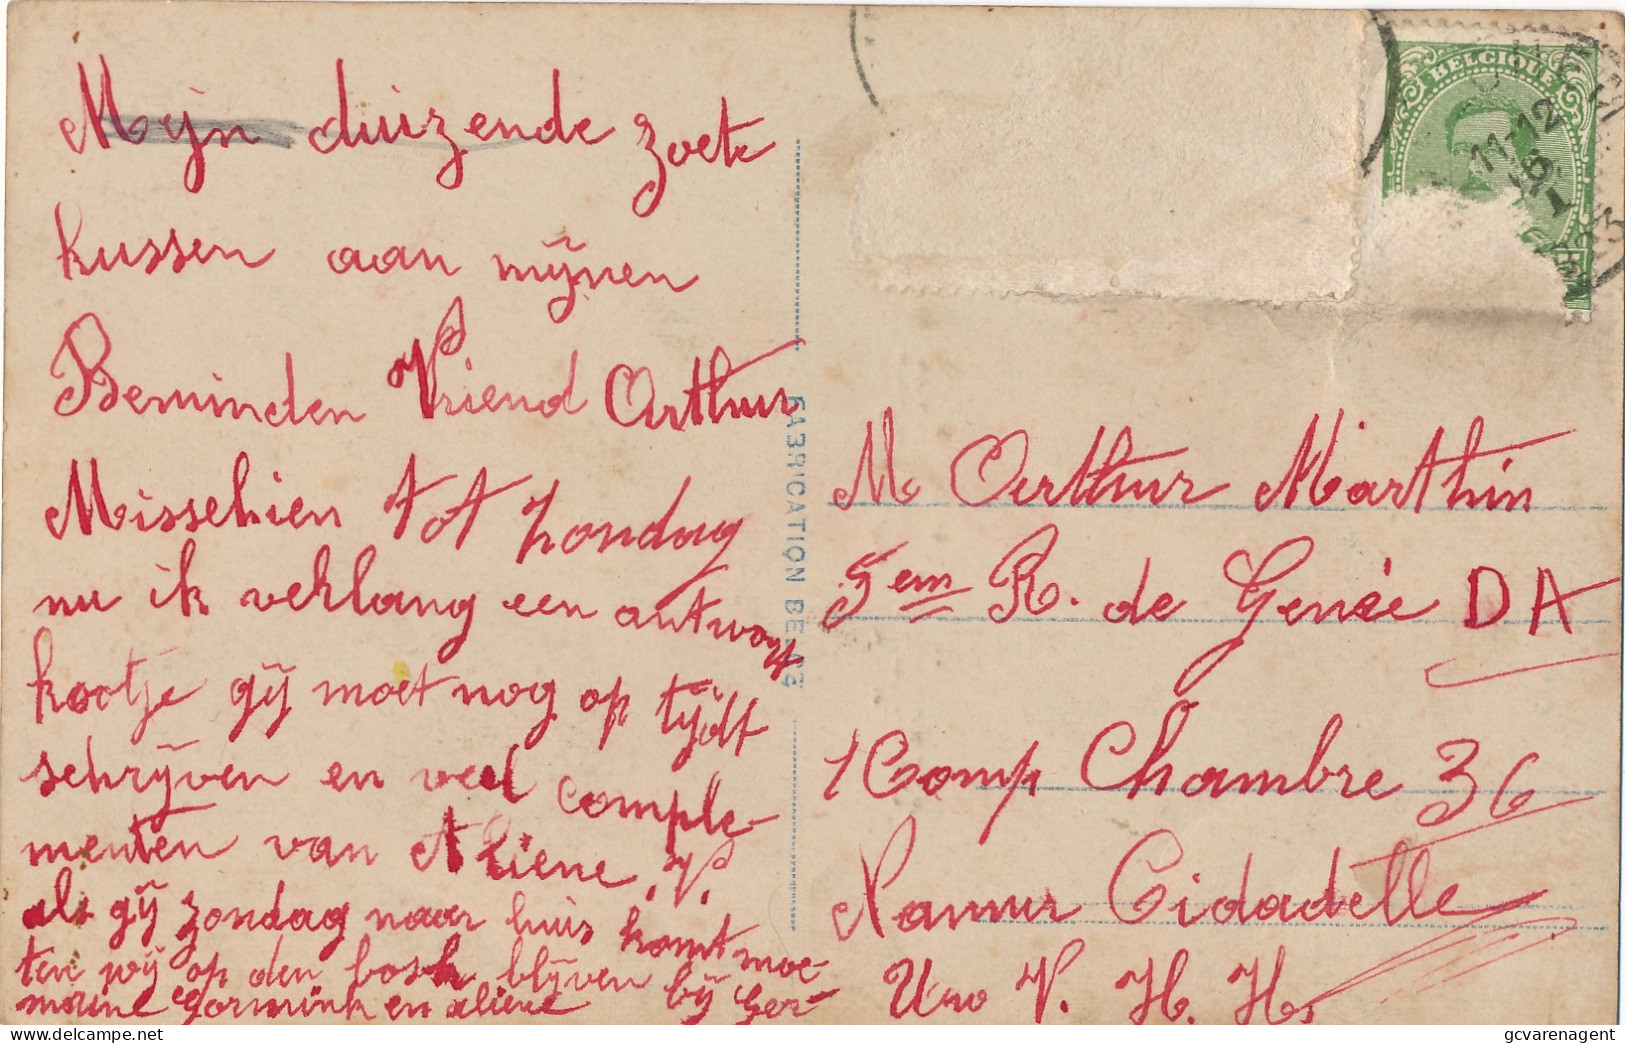 Mijn duizende zoete
kussen aan mijnen
Beminden Vriend Arthur
Misschien tot zondag
nu ik verlang een antwoort
kaotje gij moet nog op tijdt
schrijven en veel comple-
menten van Aliene. V.
als gij zondag naar huis komt moe-
ten wij op den bosch blijven bij Ger-
maine Germink en aliene
BELGIQUE
11-12
FABRICATION BELGE
M Arthur Marthin
5em R. de Genée DA
1 Comp Chambre 36
Namur Cidadelle
Uw V. H. H.
gcvarenagent